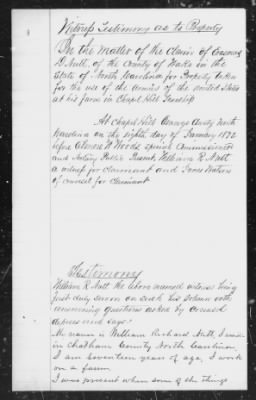 Witness Testimony as to Property
In the matter of the claim of
D Nutt, of the County of Wake in the
State of North Carolina for Property taken
for the use of the Armies of the United States
at his farm in Chapel Hill Township
At Chapel Hill Orange County North
Carolina on the eighth day of January 1872
before W Woods special Commissioner
and Notary Public Present William R. Nutt
a witness for claimant and Jones Watson
of counsel for Claimant
Testimony
William R Nutt the above named witness being
first duly sworn on oath his solemn oath
answering questions asked by counsel
deposes and says:
My name is William Richard Nutt, I reside
in Chatham County North Carolina,
I am seventeen years of age, I work
on a farm.
I was present when some of the things